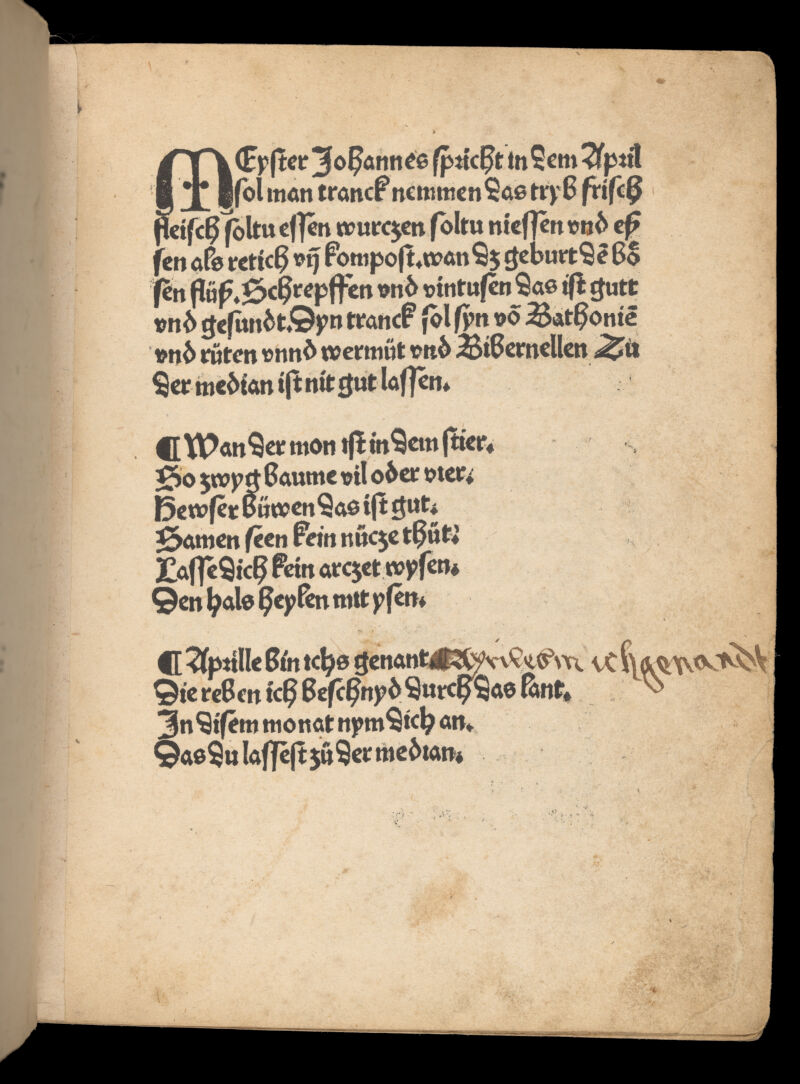 MEyster Johannes spricht in dem April
sol man tranck nemmen das tryb frisch
fleisch soltu essen wurczen soltu niessen vnd eß
sen als retich vñ kompost. wan dz geburt dē bȫ
sen flüß. Schrepffen vnd vintusen das ist gutt
vnd gesundt. Dyn tranck sol syn vō Bathoniē
vnd rüten vnnd wermüt vnd Bibernellen Zü
der median ist nit gut lassen.
¶ Wan der mon ist in dem stier.
So zwyg baume vil oder vier.
Hewser büwen das ist gut.
Samen seen kein nücze thüt.
Lasse dich kein arczet wysen.
Den hals heylen mit ysen.
¶ Aprille bin ichs genant. Apriles bin ich genandt
Die reben ich beschnyd durch das lant.
In disem monat nym dich an.
Das du lassest zü der median.